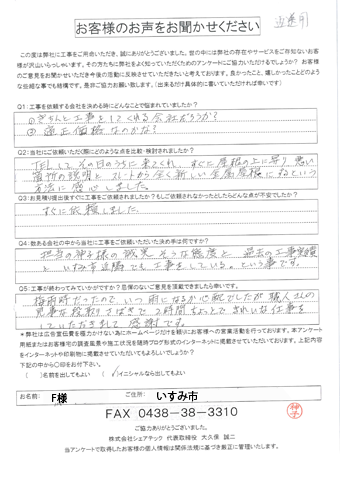 お客様のお声をお聞かせください
この度は弊社に工事をご用命いただき、誠にありがとうございました。世の中には弊社の存在やサービスをご存知ないお客様が沢山いらっしゃいます。その方たちも弊社をよく知っていただくためのアンケートにご協力いただけるでしょうか？ お客様のご意見をお聞かせいただき今後の活動に反映させていただきたいと考えております。良かったこと、嬉しかったことどのような些細な事でも結構です。是非ご協力お願い致します。（出来るだけ具体的に書いていただければ幸いです）
Q1：工事を依頼する会社を決める時にどんなことで悩まれていましたか？
①きちんと工事をしてくれる会社だろうか？
②適正価格なのかな？
Q2：当社にご依頼いただく際にどのような点を比較・検討されましたか？
TELしてその日のうちに来てくれ、すぐに屋根の上に昇り悪い
箇所の説明とスレートから全く新しい金属屋根にするという
方法に感心しました。
Q3：お見積り提出後すぐにご依頼されましたか？もしご依頼されなかったとしたらどんな点が不安でしたか？
すぐに依頼しました。
Q4：数ある会社の中から当社に工事をご依頼いただいた決め手は何ですか？
担当の神子様の誠実そうな態度と過去の工事実績
といすみ市近隣でも工事をしている。という事です。
Q5：工事が終わってみていかがですか？忌憚のないご意見を頂戴できましたら幸いです。
梅雨時だったので、いつ雨になるか心配でしたが職人さんの
見事な段取りさばきで2時間ちょっとできれいな仕事を
していただきまして感謝です。
＊弊社は広告宣伝費を極力かけない為にホームページだけを頼りにお客様への営業活動を行っております。本アンケート用紙またはお客様宅の調査風景や施工状況を随時ブログ形式のインターネットに掲載させていただいております。上記内容をインターネットや印刷物に掲載させていただいてもよろしいでしょうか？
下記の中から〇印をお付け下さい。
（ ）名前を出してもよい （✓）イニシャルなら出してもよい
お名前： F様 ご住所： いすみ市
FAX 0438-38-3310
ご協力ありがとうございました。
株式会社シェアテック 代表取締役 大久保 誠二
当アンケートで取得したお客様の個人情報は関係法規に基づき厳正に管理いたします。
神子